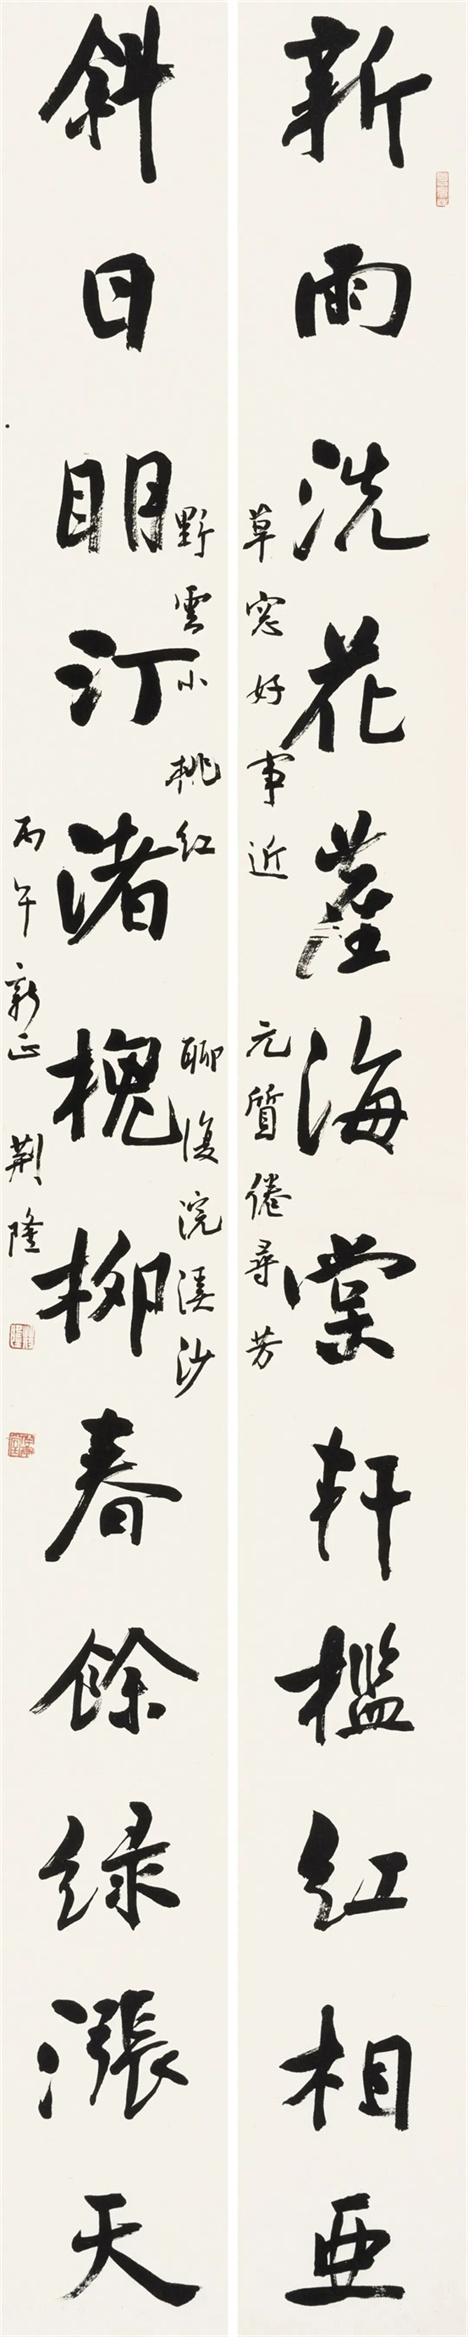 新雨洗花塵海棠軒檻紅相亞
草窓好事近 元質倦尋芳
野雲小桃紅 聊復浣溪沙
斜日明汀渚槐柳春餘緑漲天
丙午新正 荆隆